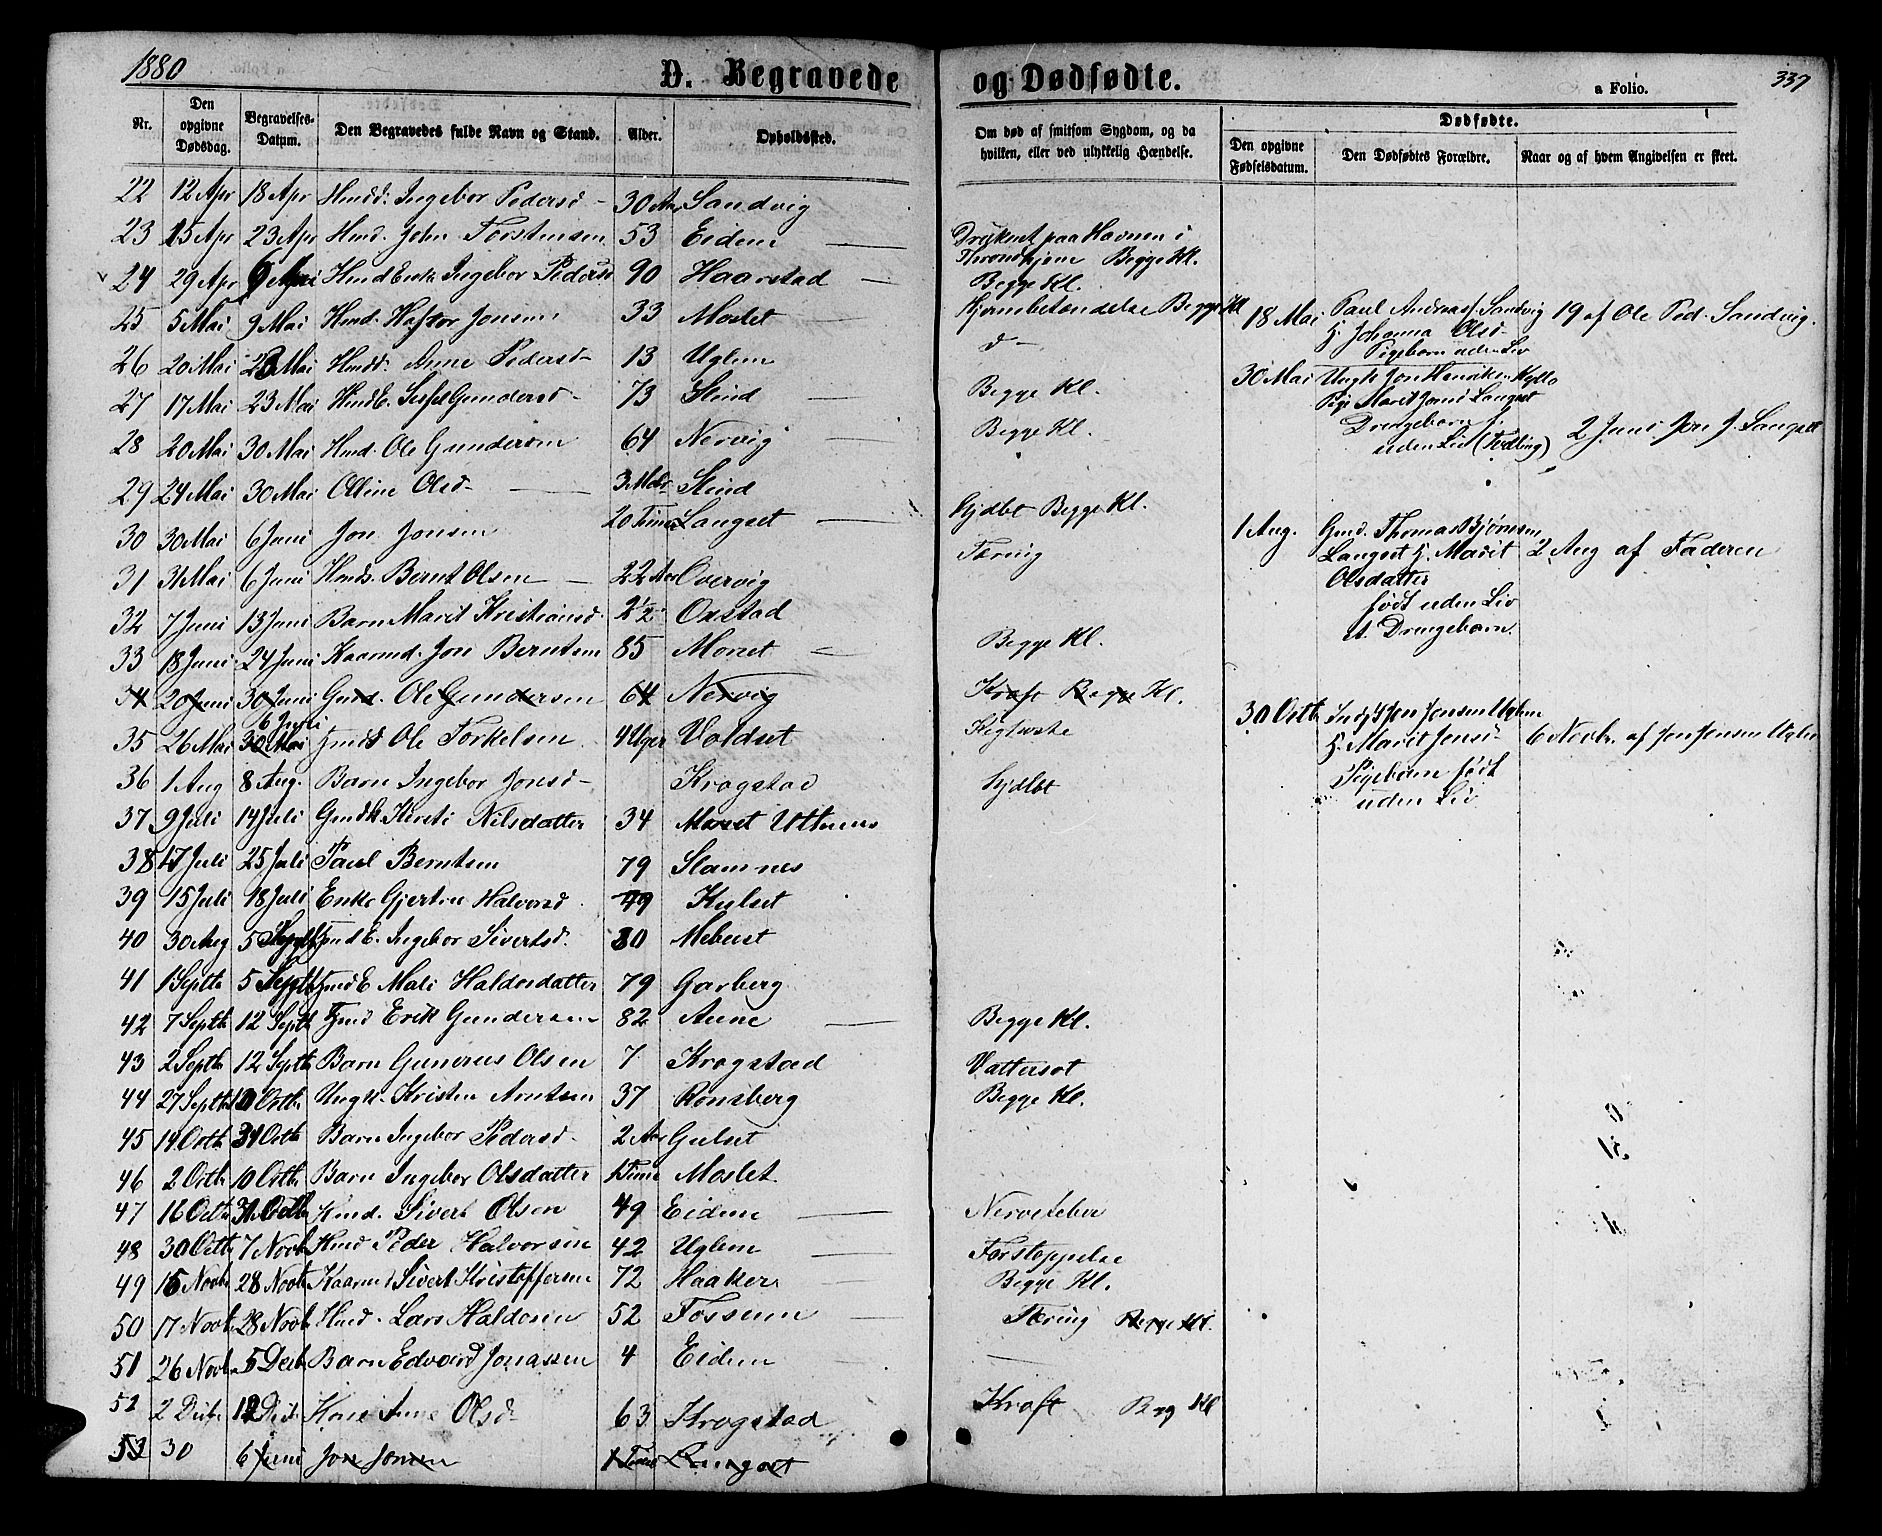 1880
D. Begravede og Dødfødte.
a Folio.
337
Nr.
Den opgivne Dødsdag.
Begravelses-Datum.
Den Begravedes fulde Navn og Stand.
Alder.
Opholdssted.
Om død af smitsom Sygdom, og da hvilken, eller ved ulykkelig Hændelse.
Dødfødte.
Den opgivne Fødselsdatum.
Den Dødfødtes Forældre.
Naar og af hvem Angivelsen er skeet.
22 12 Apr 18 Apr Ingebor Pedersd 30 Aar Sandvig
23 15 Apr 23 Apr Hmd. John Torstensen 53 Eidem paa Havnen i Begge Kl.
24 29 Apr 9 Mai Hmd Enke Ingebor Peders 90 Haarstad Begge Kl.
25 5 Mai 9 Mai Hmd. Haftor Jonsen 33 Moslet Hjernebetændelse Begge Kl
26 20 Mai 23 Mai Anne Pedersd 13 Uglem
27 17 Mai 23 Mai HmdE. Gundersd 73 Stind Begge Kl.
28 20 Mai 30 Mai Hmd. Ole Gundersen 64 Nervig Begge Kl.
29 24 Mai 30 Mai Olline Olsd 3 Stind
30 30 Mai 6 Juni Jon Jonsen 20 Timer Langset Begge Kl.
31 31 Mai 6 Juni Bernt Olsen 22 Aar Overvig Tæring
32 7 Juni 13 Juni Barn Marit Kristiansd. 2 1/2 Oxstad
33 18 Juni 24 Juni Kaarmd. Jon Berntsen 85 Moset Begge Kl.
34 20 Juni 30 Juni Gmd. Ole Gundersen 64 Nervig Kraft Begge Kl.
35 26 Mai 30 Mai 6 Juni Ole Torkelsen 4 Uger Voldset
36 1 Aug 8 Aug. Barn Ingebor Jonsd Kragstad
37 9 Juli 14 Juli Kirsti Nilsdatter 34 Moset
38 17 Juli 25 Juli Paul Berntsen 79 Slamnes
39 15 Juli 18 Juli Enke Gjertru Halvorsd. 79 Kulset
40 30 Aug 5 Septb Ingebor Sivertsd. 80 Mebust
41 1 Septb 5 Septb Mali Haldosdatter 79 Garberg
42 7 Septb 12 Septb Gmd Erik Gundersen 82 Aune Begge Kl.
43 2 Septb 12 Septb Barn Gunerus Olsen 7 Kragstad Vattersot
44 27 Septb 10 Octb Ungk. Kristen Arntsen 37 Rønsberg Begge Kl.
45 14 Octb 31 Octb Barn Ingebor Pedersd. 2 Aar Gulset
46 2 Octb 10 Octb Barn Ingebor Olsdatter 1 Time Moslet
47 16 Octb 31 Octb Hmd. Sivert Olsen 49 Eidem Nervefeber
48 30 Octb 7 Novb Hmd Peder Halvorsen 42 Uglem Forstoppelse
49 15 Novb 28 Novb Kaarmd Sivert Kristoffersen 72 Haaker Begge Kl.
50 17 Novb 28 Novb Hmd. Lars Haldosen 52 Fossum Tæring Begge Kl.
51 26 Novb 5 Decb Barn Edvard Jonassen 4 Eidem
52 2 Decb 12 Decb Kone Anne Olsd 63 Kragstad Kræft Beg Kl
53 30 6 Juni Jon Jonsen 1 Time Langset
18 Mai Paul Andreas Sandvig 19 af Ole Ped. Sandvig.
H. Johanna Olsd
Pigebarn uden Liv
30 Mai Ungk Jon Henriksen Kyllo
Pige Marit Langset
Drengebarn
uden Liv (Tvilling) 2 Juni Jon J. Langset
1 Aug. Gmd. Thomas Bjørnsen
Langset H. Marit 2 Aug af Faderen
Olsdatter
født uden Liv
et Drengebarn.
30 Octb Jon Jonsen Uglem
H. Marit Jensd 6 Novbr. af Jon Jensen Uglem
Pigebarn født
uden Liv